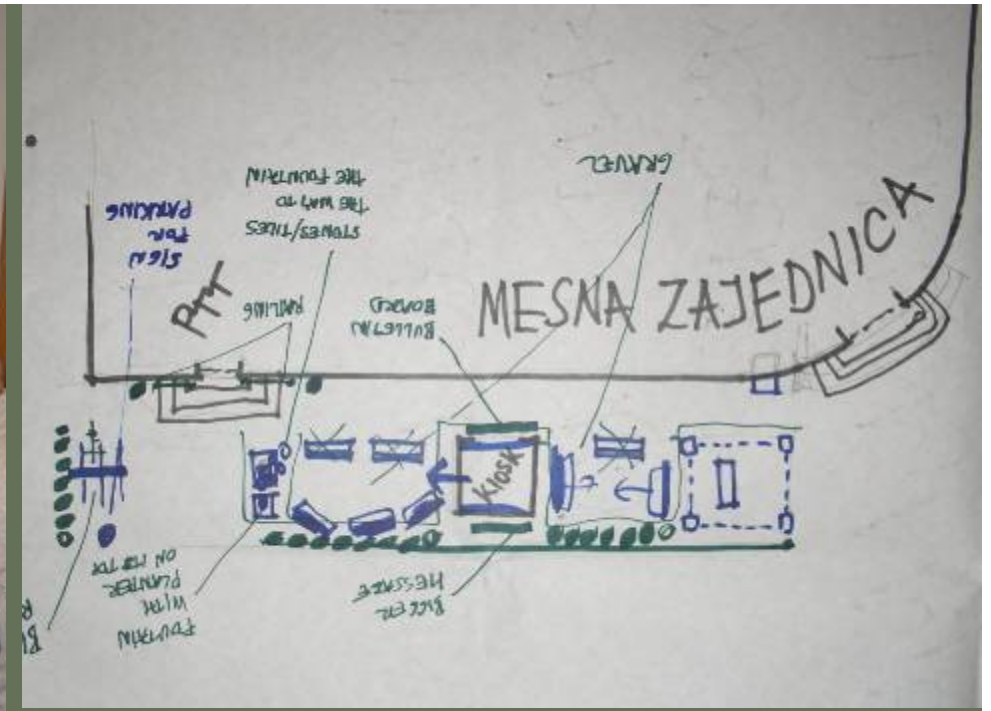 SIGN
FOR
PARKING
PTT
STONES/TILES
THE WAY TO
THE FOUNTAIN
RAILING
BULLETIN
BOARD
GRAVEL
MESNA ZAJEDNICA
KIOSK
FOUNTAIN
WITH
PLANTER
ON
BIGGER
MESSAGE